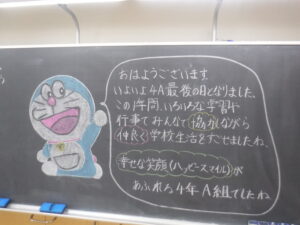 おはようございます
いよいよ4A最後の日となりました。
この1年間、いろいろな学習や
行事でみんなで協力しながら
仲良く学校生活をすごせましたね。
幸せな笑顔(ハッピースマイル)が
あふれる4年A組でしたね